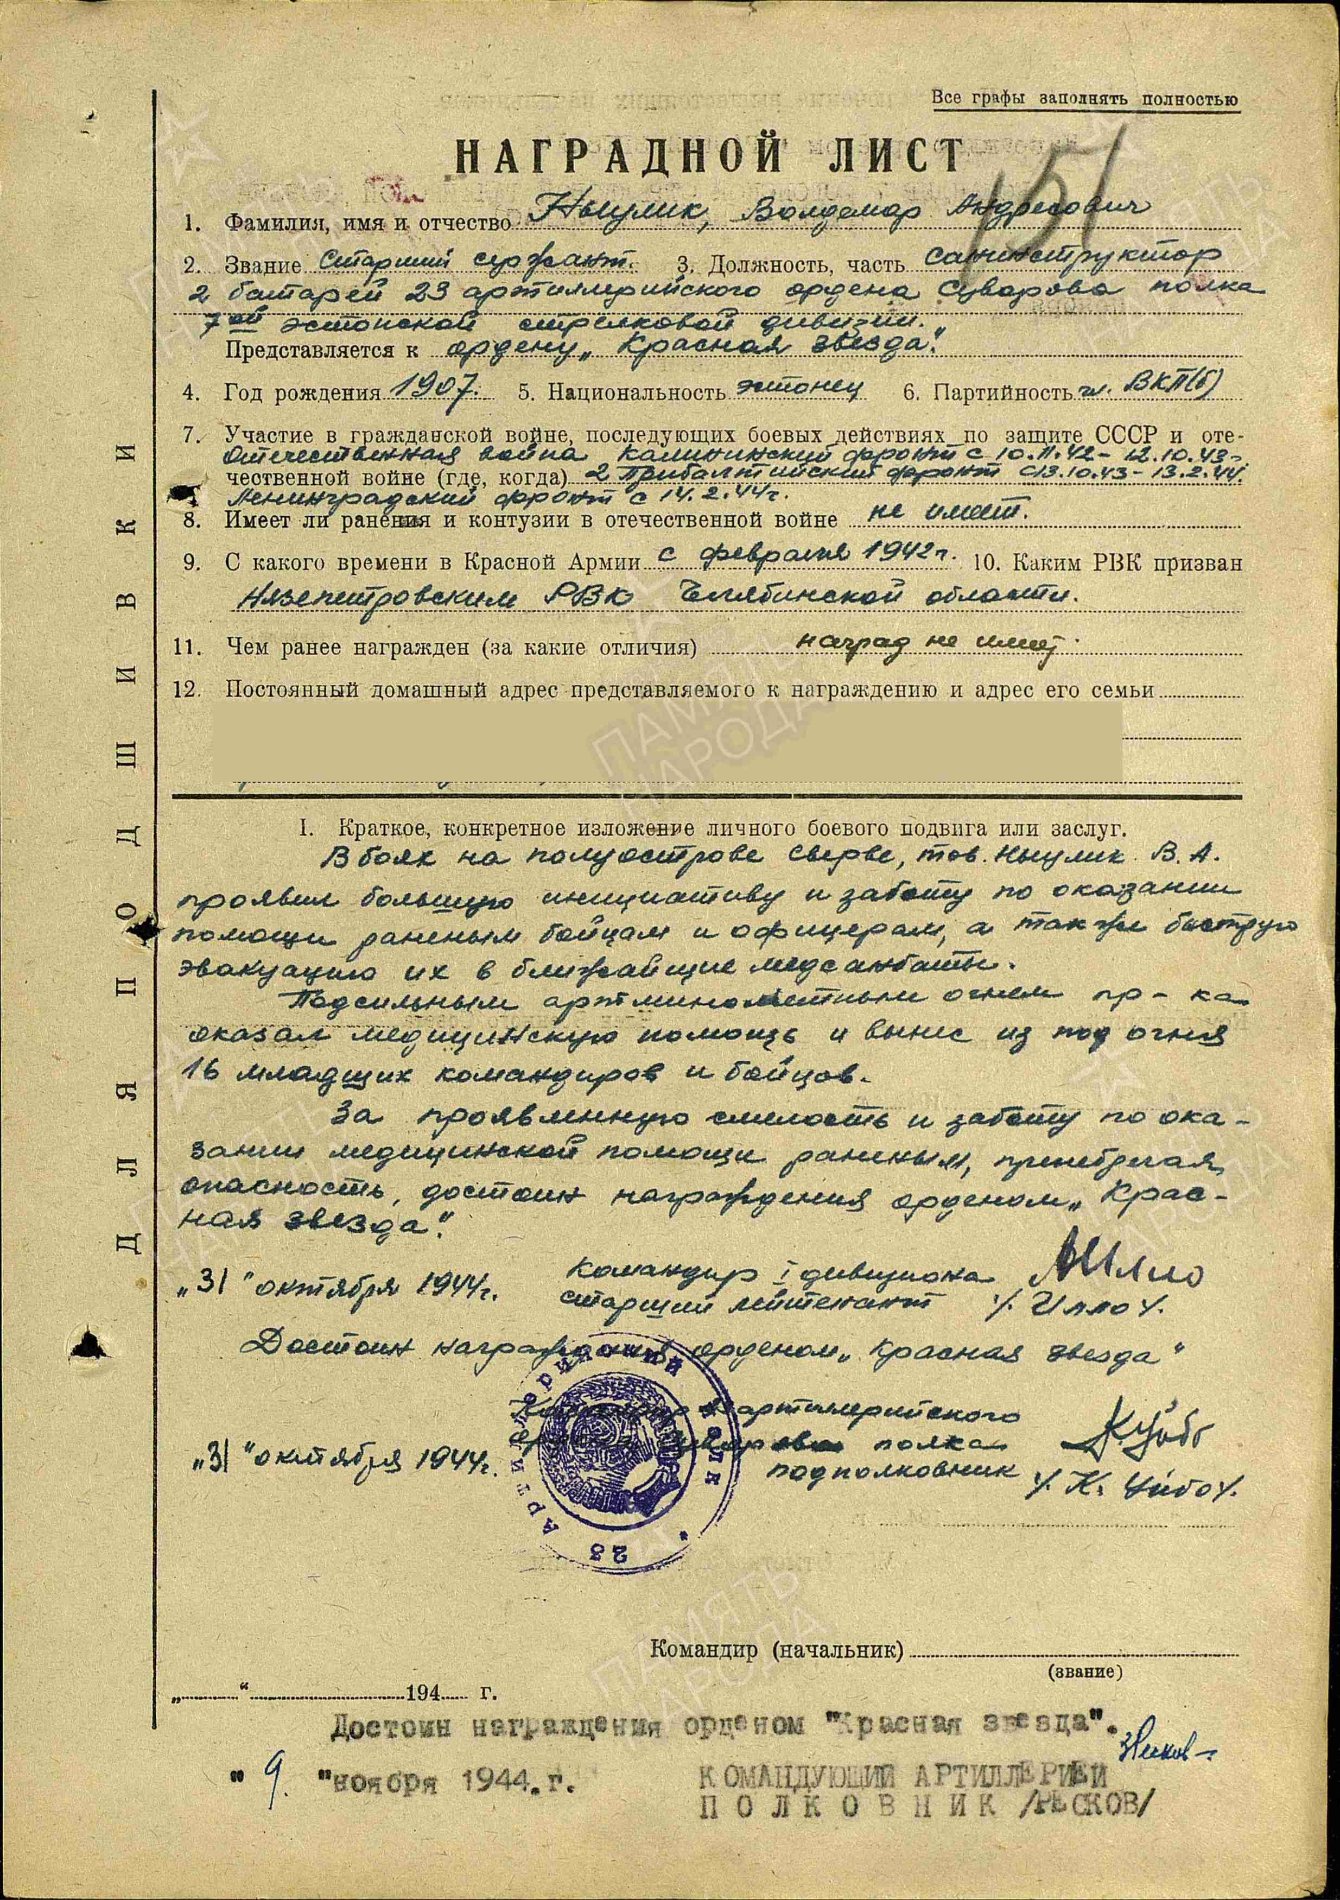 Все графы заполнять полностью
НАГРАДНОЙ ЛИСТ
151
1. Фамилия, имя и отчество Ныулик, Волдемар Андресович
2. Звание Старший сержант. 3. Должность, часть санинструктор
2 батареи 23 артиллерийского ордена Суворова полка
7ой эстонской стрелковой дивизии.
Представляется к ордену „Красная звезда".
4. Год рождения 1907. 5. Национальность эстонец 6. Партийность чл. ВКП(б)
7. Участие в гражданской войне, последующих боевых действиях по защите СССР и оте-
Отечественная война Калининский фронт с 10.11.42 - 12.10.43-
чественной войне (где, когда) 2 Прибалтийский фронт с 13.10.43 - 13.2.44.
Ленинградский фронт с 14.2.44г.
8. Имеет ли ранения и контузии в отечественной войне не имеет.
9. С какого времени в Красной Армии с февраля 1942г. 10. Каким РВК призван
Нязепетровским РВК Челябинской области.
11. Чем ранее награжден (за какие отличия) наград не имеет.
12. Постоянный домашный адрес представляемого к награждению и адрес его семьи
I. Краткое, конкретное изложение личного боевого подвига или заслуг.
В боях на полуострове Сверве, тов. Ныулик В. А.
проявил большую инициативу и заботу по оказании
помощи раненым бойцам и офицерам, а также быструю
эвакуацию их в ближайщие медсанбаты.
Под сильным артминометным огнем пр-ка
оказал медицинскую помощь и вынес из под огня
16 младщих командиров и бойцов.
За проявленную смелость и заботу по ока-
зании медицинской помощи раненым, пренебрегая
опасность, достоин награждения орденом „Крас-
ная звезда".
„31" октября 1944г. Командир I дивизиона
старший лейтенант /. Илло /.
Достоин награждения орденом „Красная звезда"
Командир артиллерийского
ордена Суворова полка
„31" октября 1944г. подполковник /. К. Уйбо /.
23 Артиллерийский полк
Командир (начальник)
(звание)
„ “ 194 г.
Достоин награждения орденом "Красная звезда".
" 9. "ноября 1944.г. КОМАНДУЮЩИЙ АРТИЛЛЕРИЕЙ
ПОЛКОВНИК /РЕСКОВ/
ДЛЯ ПОДШИВКИ
ПАМЯТЬ НАРОДА